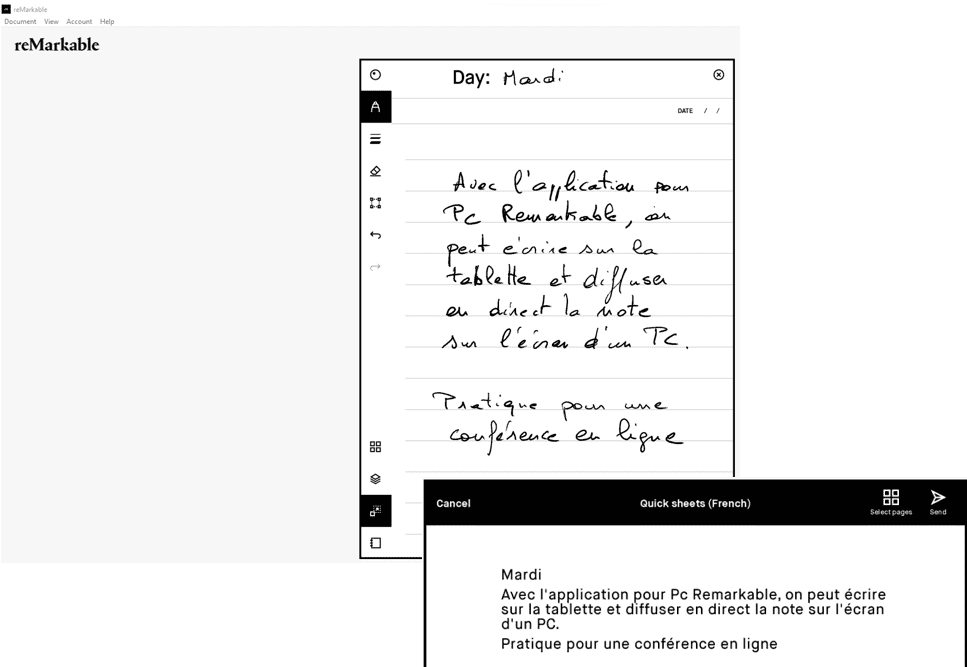 reMarkable
Document View Account Help
reMarkable
Day: Mardi
DATE / /
Avec l'application pour
Pc Remarkable, on
peut écrire sur la
tablette et diffuser
en direct la note
sur l'écran d'un PC.
Pratique pour une
conférence en ligne
Cancel Quick sheets (French) Select pages Send
Mardi
Avec l'application pour Pc Remarkable, on peut écrire
sur la tablette et diffuser en direct la note sur l'écran
d'un PC.
Pratique pour une conférence en ligne